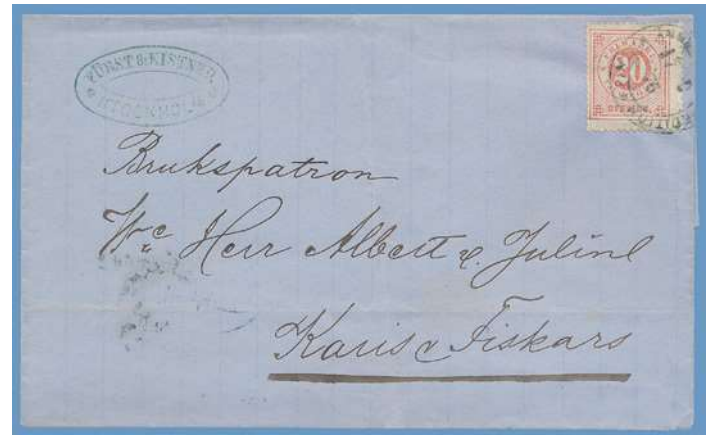 FÜRST & KISTNER.
STOCKHOLM
20
Brukspatron
Wc Herr Albert v. Juline
Karis & Fiskars